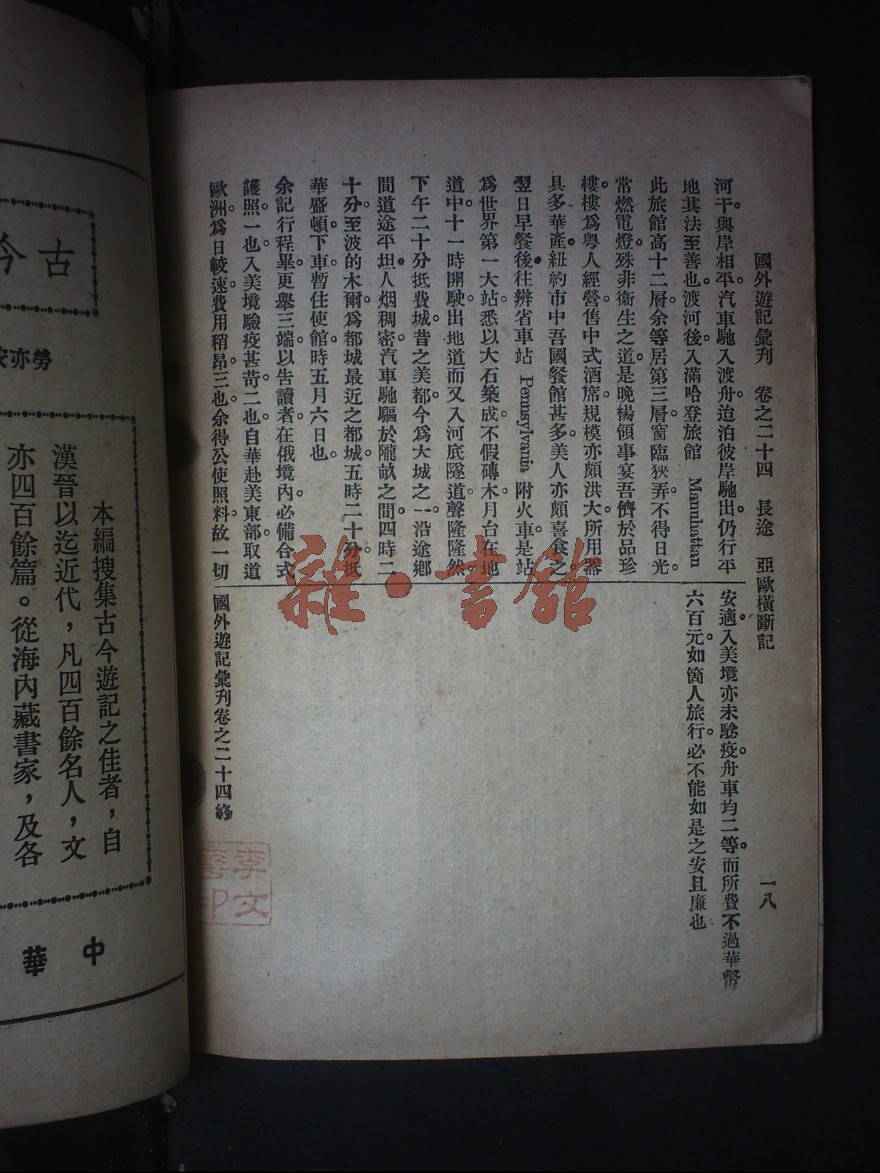 國外遊記彙刊　卷之二十四　長途　亞歐橫斷記
一八
河干與岸相平。汽車馳入渡舟。迨泊彼岸馳出。仍行平
地。其法至善也。渡河後。入滿哈登旅館 Manuhattan
此旅館高十二層。余等居第三層。窗臨狹弄。不得日光。
常燃電燈。殊非衞生之道。是晚楊領事宴吾儕於品珍
樓。樓爲粤人經營。售中式酒席。規模亦頗洪大。所用器
具多華產。紐約市中。吾國餐館甚多。美人亦頗喜食之。
翌日早餐後。往辦省車站 Pennsylvania 附火車。是站
爲世界第一大站。悉以大石築成。不假磚木。月台在地
道中。十一時開駛。出地道而又入河底隧道。聲隆隆然。
下午二十分抵費城。昔之美都。今爲大城之一。沿途鄉
間道途平坦。人烟稠密。汽車馳驅於隴畝之間。四時二
十分。至波的木爾。爲都城最近之都城。五時二十分。抵
華盛頓下車。暫住使館。時五月六日也。
余記行程畢。更舉三端。以告讀者。在俄境內。必備合式
護照。一也。入美境驗疫甚苛。二也。自華赴美東部。取道
歐洲。爲日較速。費用稍昂。三也。余得公使照料。故一切
安適。入美境亦未騐疫。舟車均二等。而所費不過華幣
六百元。如箇人旅行。必不能如是之安且廉也
國外遊記彙刊卷之二十四終
李文
印
雜·書館
古今
勞亦安
本編搜集古今遊記之佳者，自
漢晉以迄近代，凡四百餘名人，文
亦四百餘篇。從海內藏書家，及各
中華